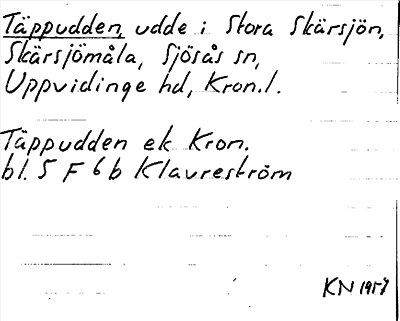 Täppudden, udde i Stora Skärsjön,
Skärsjömåla, Sjösås sn,
Uppvidinge hd, Kron.l.
Täppudden ek Kron.
bl. 5 F 6 b Klavreström
KN 1957